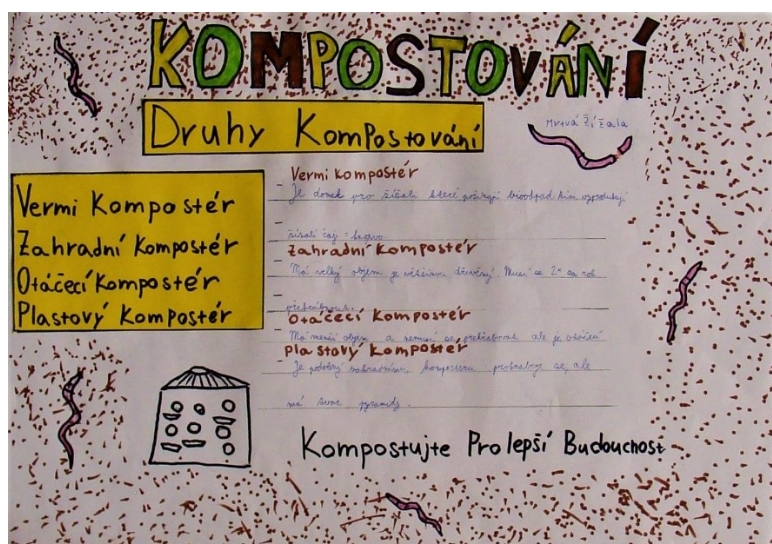 KOMPOSTOVÁNÍ
Druhy Kompostování
Mrtvá Žížala
Vermi Kompostér
Zahradní Kompostér
Otáčecí Kompostér
Plastový Kompostér
Vermi kompostér
Je domek pro žížali které požírají bioodpad tím vyprodukují
žížalí čaj =
Zahradní kompostér
Má velký objem je většinou dřevěný. Musí se 2x za rok
přehrabovat.
Otáčecí kompostér
Má menší objem a nemusí se přehrabovat ale je otáčecí
Plastový kompostér
Je podobný zahradnímu, kompostu se, ale
má tvar pyramidy.
Kompostujte Pro lepší Budoucnost